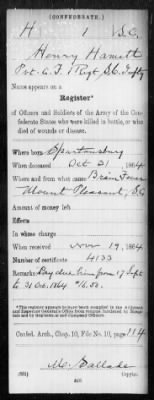 (CONFEDERATE.)
H 1 S.C.
Henry Hamith
Pvt. Co. I 1 Regt S.C. Infty
Name appears on a
Register*
of Officers and Soldiers of the Army of the Confederate States who were killed in battle, or who
died of wounds or disease.
Where born Spartanburg
When deceased Oct 21, 1864
Where and from what cause Brain Fever
Mount Pleasant, S.C.
Amount of money left
Effects
In whose charge
When received Nov 19, 1864
Number of certificate 4133
Remarks: Pay due him from 1st Sept
to 21 Oct. 1864
*This register appears to have been compiled in the
Confed. Arch., Chap. 10, File No. 10, page 114
Copyist.